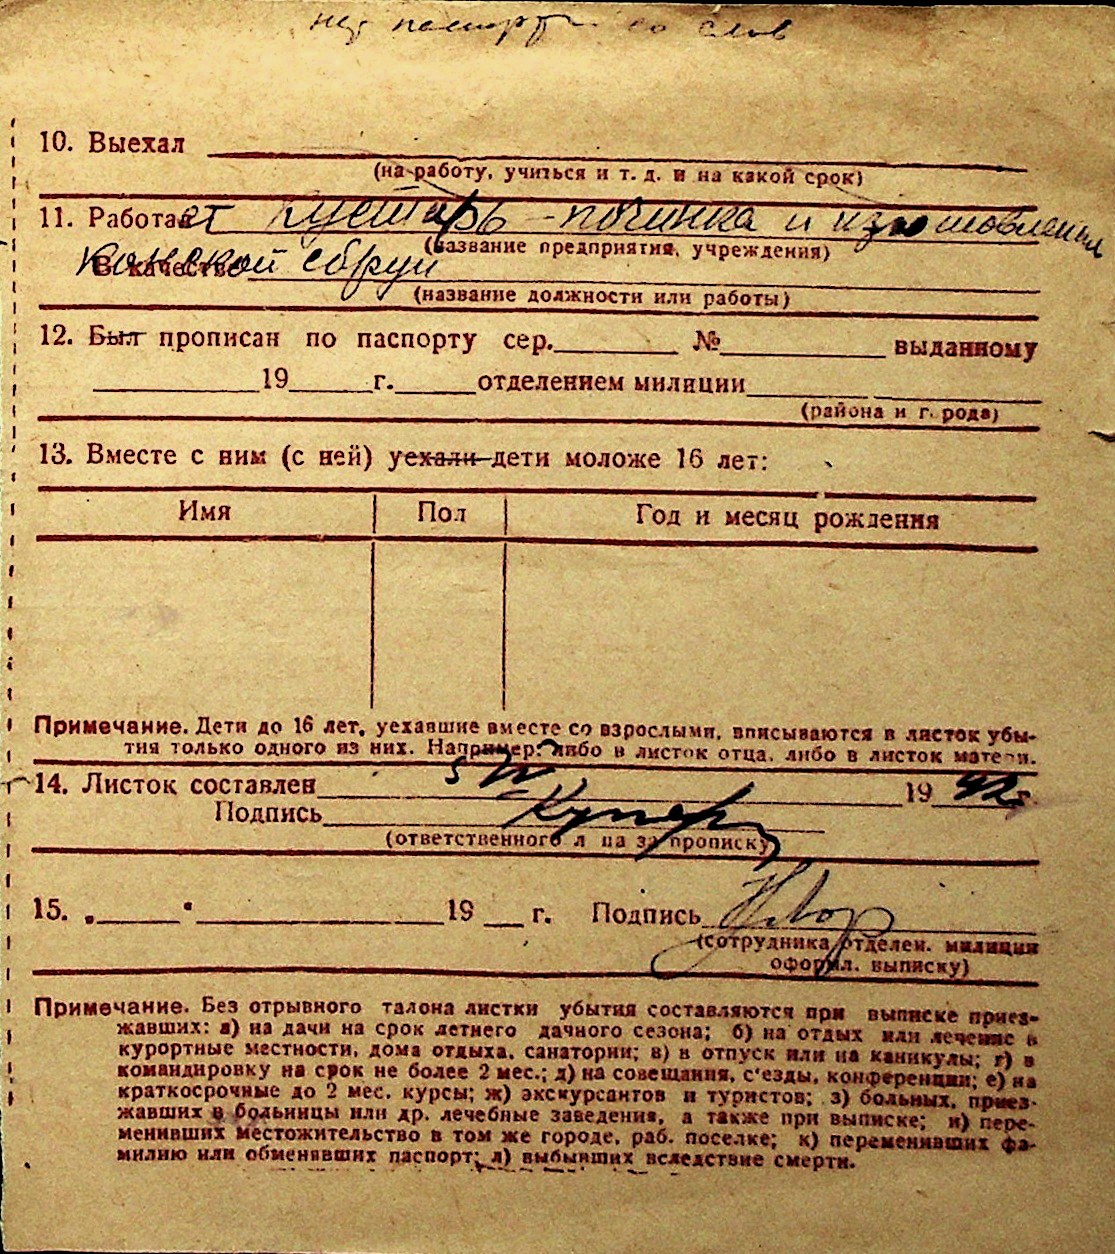 нет паспорта со слов
10. Выехал
(на работу, учиться и т. д. и на какой срок)
11. Работает кустарь - починка и изготовление
(название предприятия, учреждения)
В качестве конской сбруи
(название должности или работы)
12. Был прописан по паспорту сер. № выданному
19 г. отделением милиции
(района и г. рода)
13. Вместе с ним (с ней) уехали дети моложе 16 лет:
Имя Пол Год и месяц рождения
Примечание. Дети до 16 лет, уехавшие вместе со взрослыми, вписываются в листок убы-
тия только одного из них. Например: либо в листок отца, либо в листок матери.
14. Листок составлен 5 19 42 г.
Подпись
(ответственного л ца за прописку)
15. „ “ 19 г. Подпись
(сотрудника отделен. милиции
оформл. выписку)
Примечание. Без отрывного талона листки убытия составляются при выписке приез-
жавших: а) на дачи на срок летнего дачного сезона; б) на отдых или лечение в
курортные местности, дома отдыха, санатории; в) в отпуск или на каникулы; г) в
командировку на срок не более 2 мес.; д) на совещания, с'езды, конференции; е) на
краткосрочные до 2 мес. курсы; ж) экскурсантов и туристов; з) больных, приез-
жавших в больницы или др. лечебные заведения, а также при выписке; и) пере-
менивших местожительство в том же городе, раб. поселке; к) переменивших фа-
милию или обменявших паспорт; л) выбывших вследствие смерти.